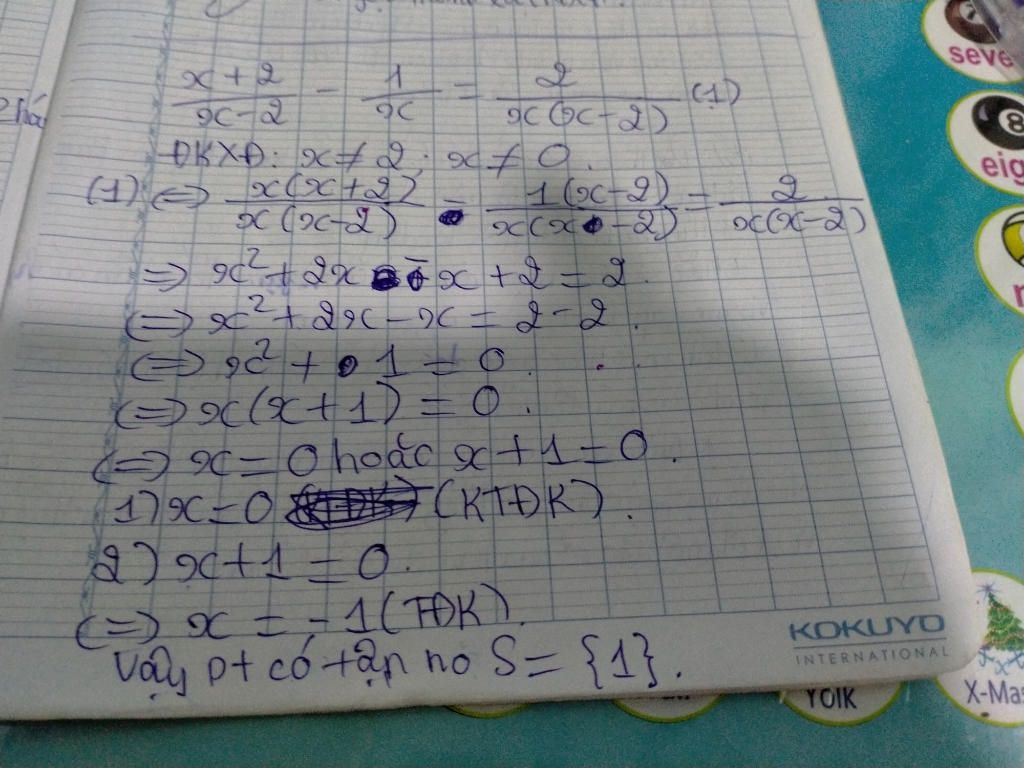 x+2/x-2 - 1/x = 2/x(x-2) (1)
ĐKXĐ: x ≠ 2; x ≠ 0.
(1) <=> x(x+2)/x(x-2) - 1(x-2)/x(x-2) = 2/x(x-2)
=> x² + 2x - x + 2 = 2.
<=> x² + 2x - x = 2 - 2.
<=> x² + 1 = 0.
<=> x(x+1) = 0.
<=> x = 0 hoặc x + 1 = 0.
1) x = 0 (KTĐK).
2) x + 1 = 0.
<=> x = -1 (TĐK).
Vậy pt có tập no S = {1}.
KOKUYO
INTERNATIONAL
seve
8
eig
YOIK
X-Mas